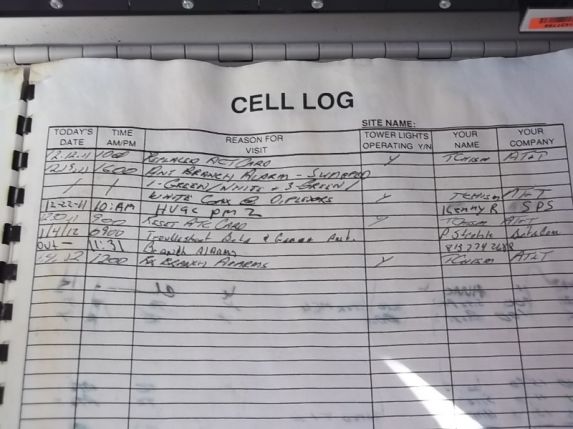 CELL LOG
SITE NAME:
TODAY'S DATE TIME AM/PM REASON FOR VISIT TOWER LIGHTS OPERATING Y/N YOUR NAME YOUR COMPANY
12.12.11 REPLACED CARD Y TChism AT&T
12.19.11 1600 ANT BRANCH ALARM - SWAPPED
/ / 1-GREEN/WHITE & 3-GREEN/
WHITE COAX @ DIPLEXORS Y TChism AT&T
12-22-11 10:AM HVAC PM 2 Kenny R SPS
900 RESET CARD Y TChism AT&T
1/4/12 0900 Troubleshoot Data & Ant.
OUT - 11:31 Branch Alarms
12 1200 BRANCH ALARMS Y TChism AT&T